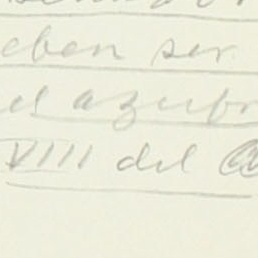 eben ser
el azufr
VIII del